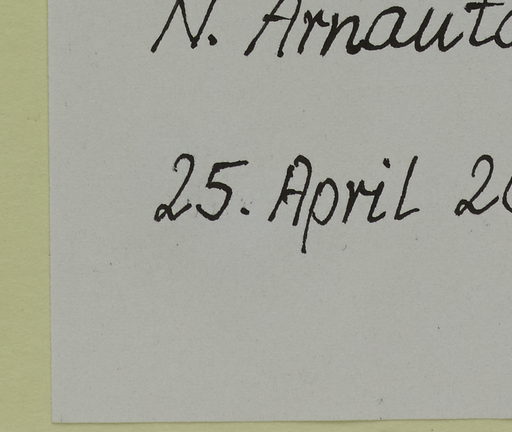 N. Arnauto
25. April 20